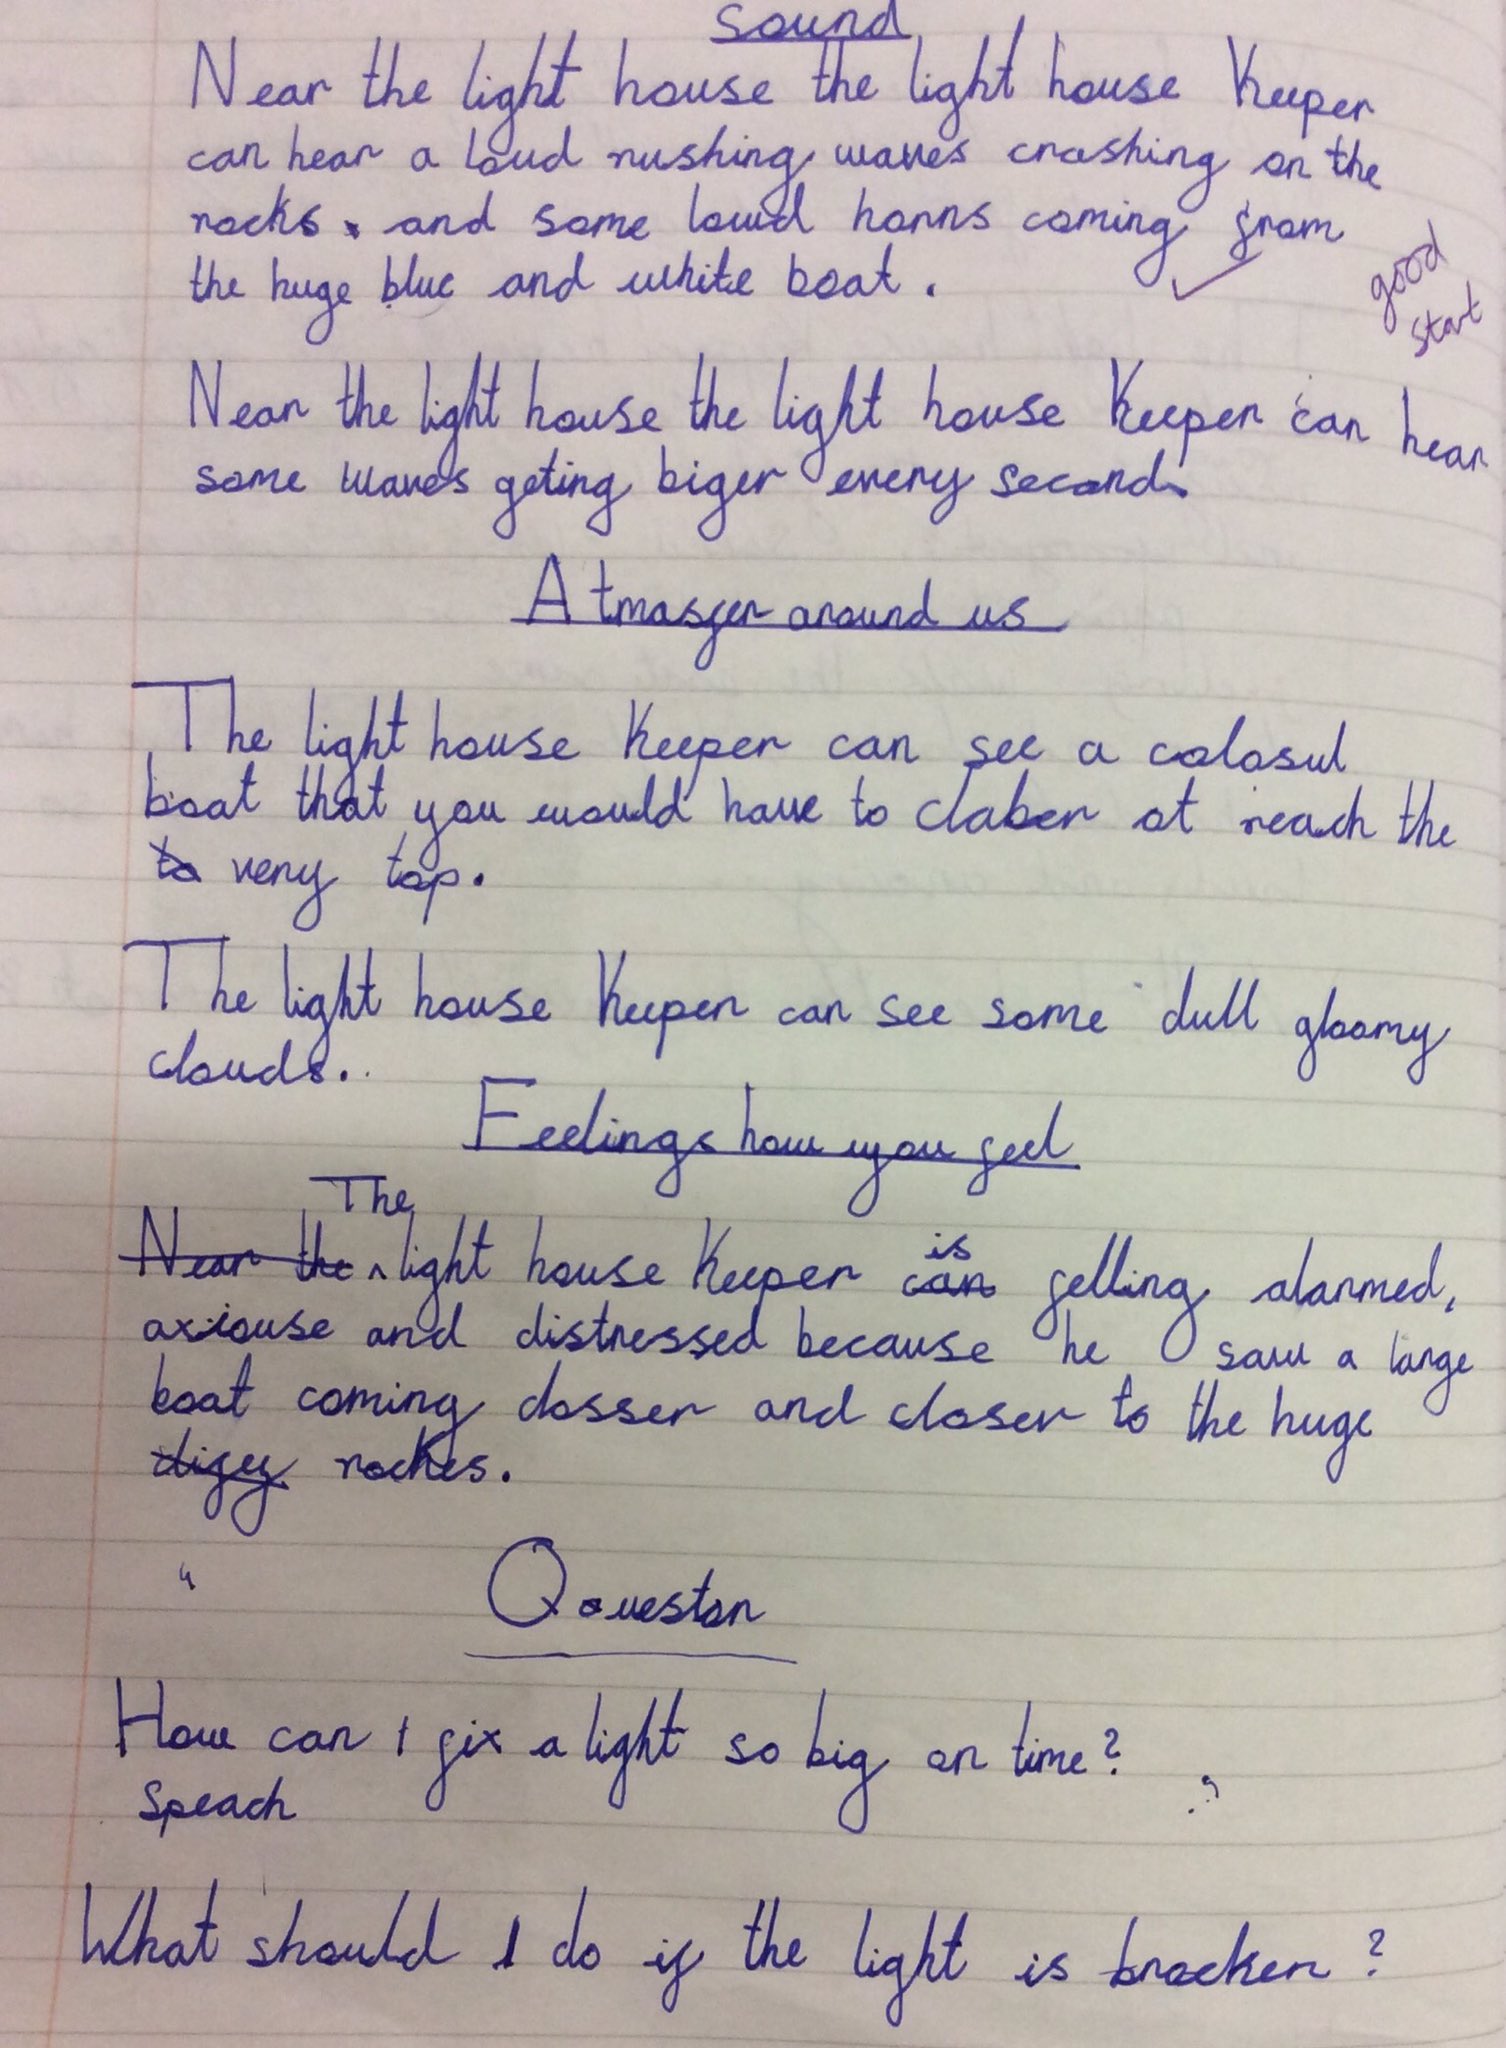 sound
Near the light house the light house Keeper
can hear a loud rushing waves crashing on the
rocks. and some lowd horns coming from
the huge blue and white boat.
good
start
Near the light house the light house Keeper can hear
some waves geting biger every second.
Atmasfer around us
The light house Keeper can see a colosul
boat that you would have to claber ot reach the
to very top.
The light house Keeper can see some dull gloomy
clouds.
Feelings how you feel
The
Near the ^ light house Keeper can is felling alarmed,
axiouse and distressed because he saw a large
boat coming closser and closer to the huge
rockes.
Qoueston
How can I fix a light so big on time?
Speach
What should I do if the light is brocken?